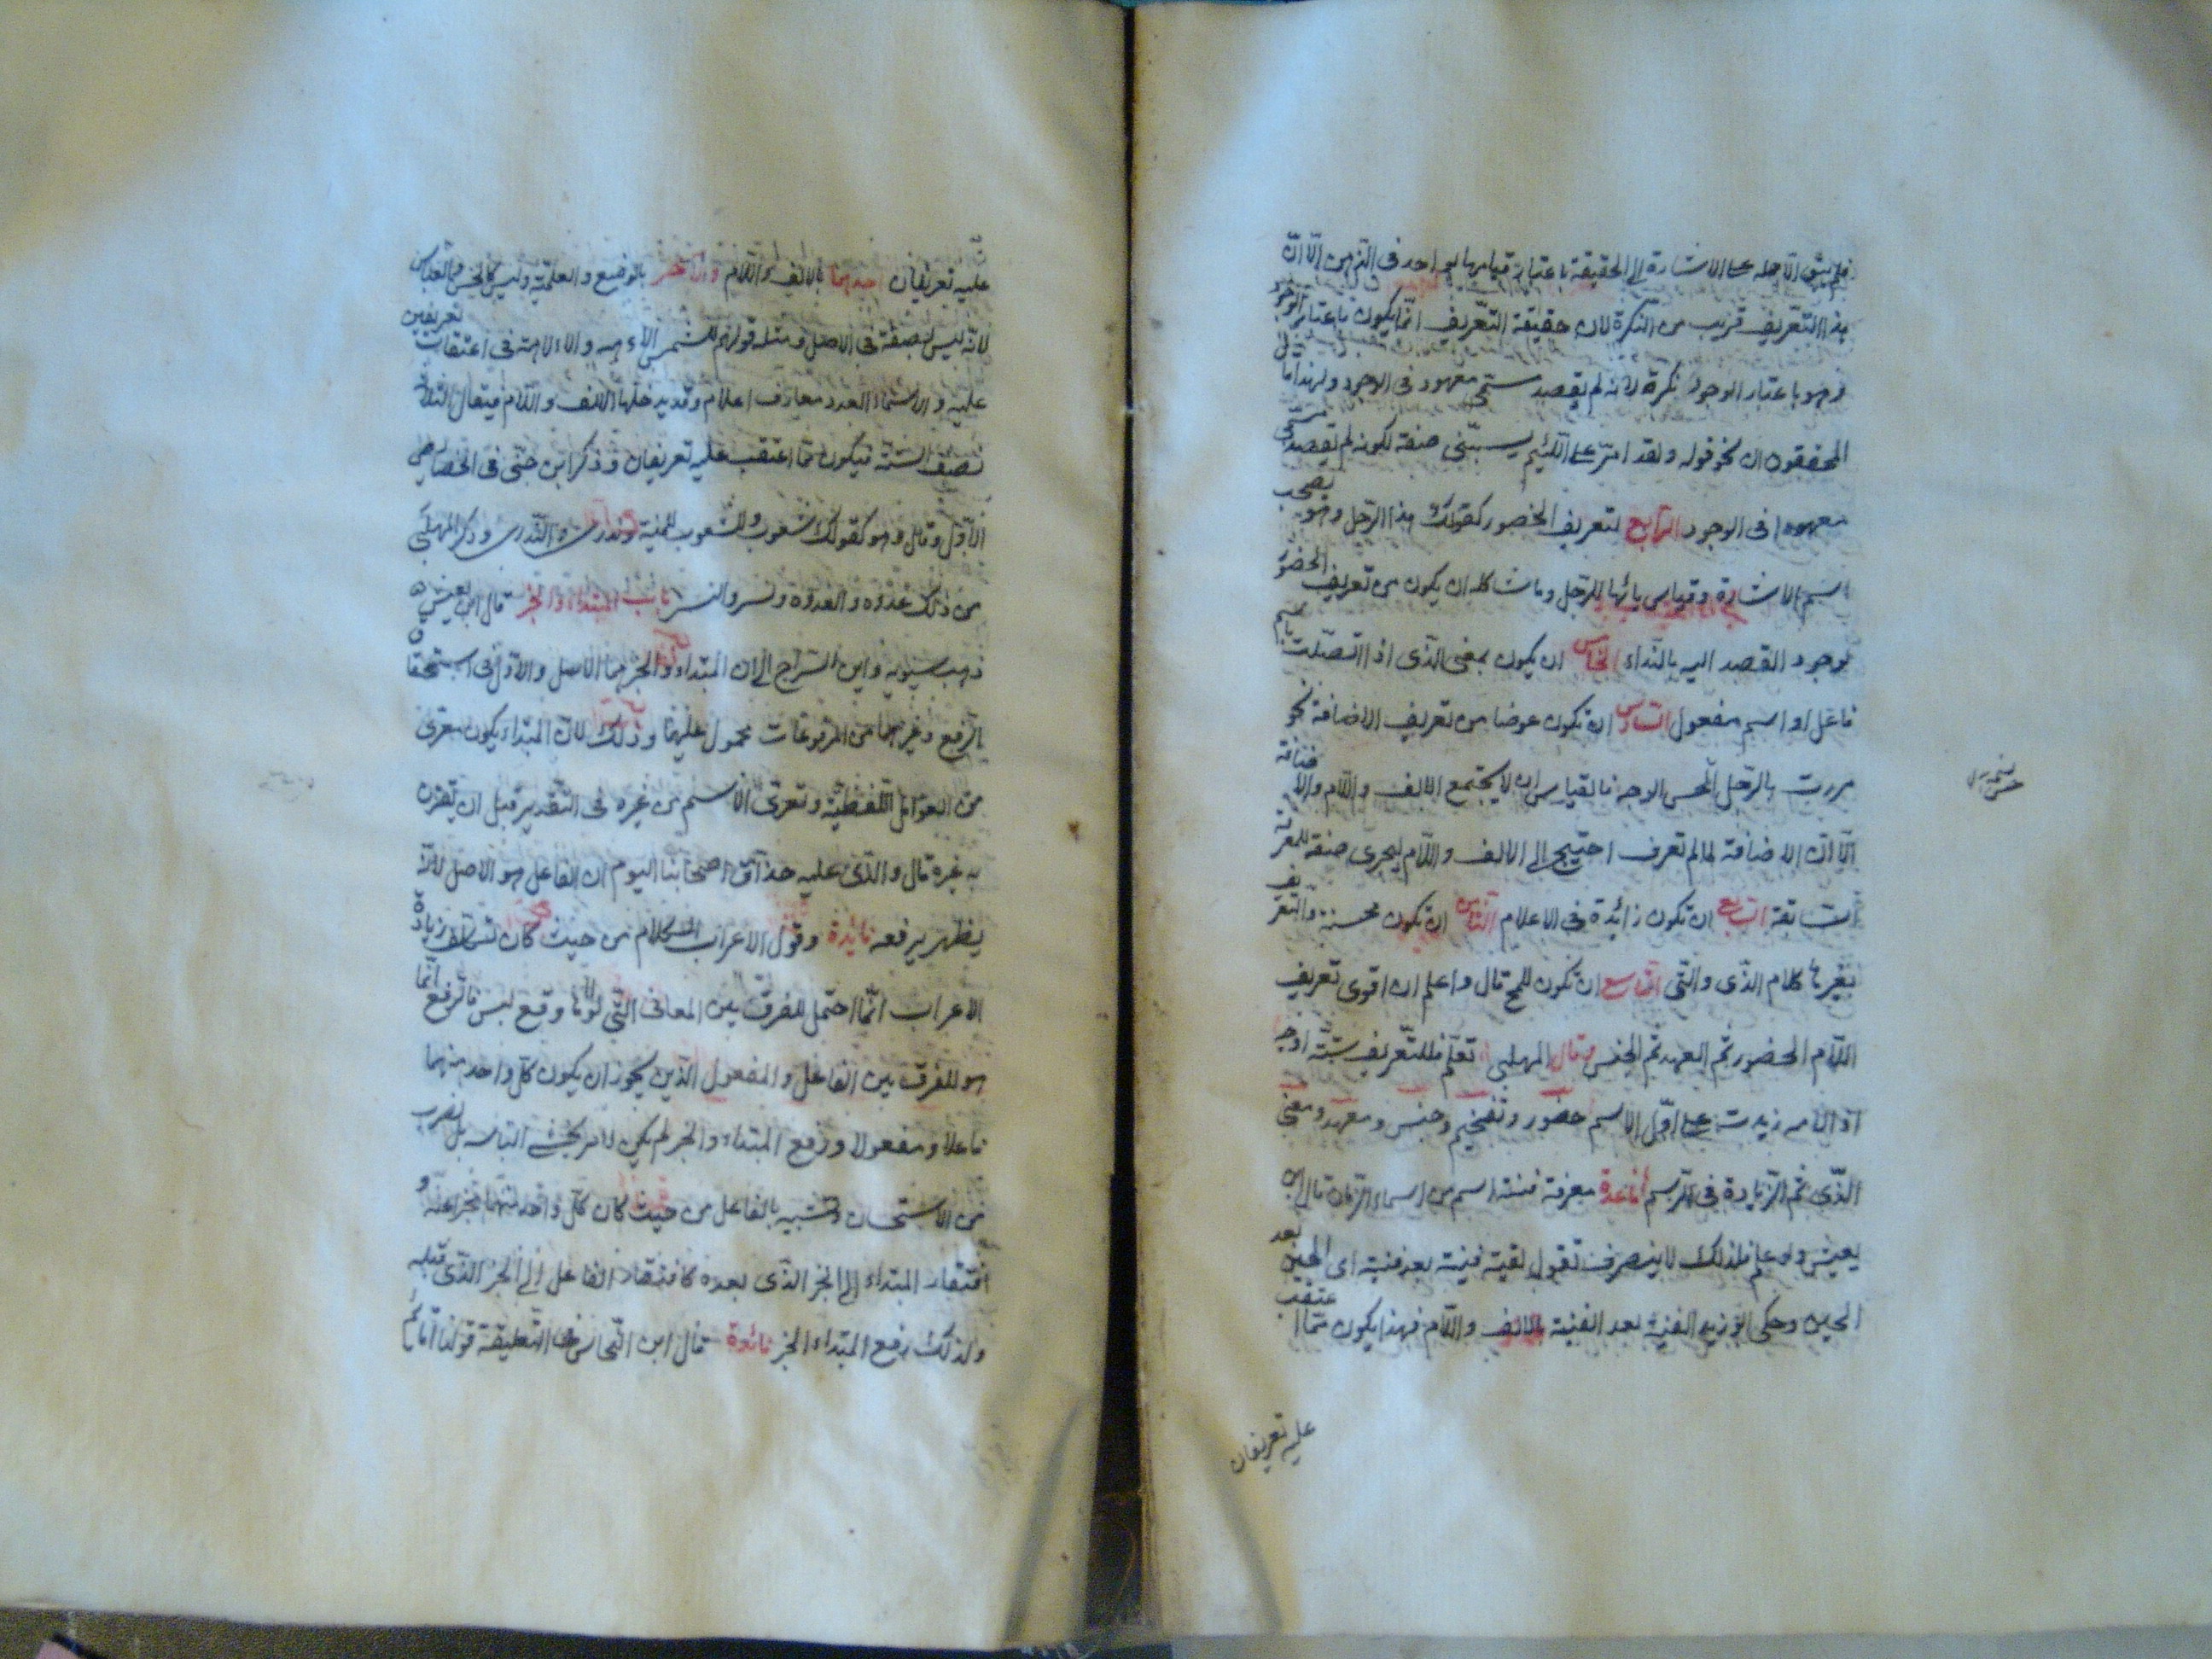 فلم يبق الا حمله على الاشارة الى الحقيقة باعتبار قيامها بواحد فى الذهن الا ان
هذا التعريف قريب من النكرة لان حقيقة التعريف انما يكون باعتبار الوجود
وهو باعتبار الوجود نكرة لانه لم يقصد مسمى معهود فى الوجود ولهذا قال
المحققون ان نحو قوله ولقد امر على اللئيم يسبنى صفة لكونه لم يقصد مسمى
معهودا فى الوجود الرابع لتعريف الحضور كقولك هذا الرجل وهو يصحب
اسم الاشارة وقياس يائها الرجل وما شاكله ان يكون من تعريف الحضور
لوجود القصد اليه بالنداء الخامس ان يكون بمعنى الذى اذا اتصلت باسم
فاعل او اسم مفعول السادس ان تكون عوضا من تعريف الاضافة نحو
مررت بالرجل الحسن الوجه فالقياس ان لا يجتمع الالف واللام والاضافة
الا ان الاضافة لما لم تعرف احتيج الى الالف واللام ليجرى صفة للمعرفة
السابقة السابع ان تكون زائدة فى الاعلام الثامن ان تكون محسنة والتعريف
بغيرها كلام الذى والتى التاسع ان تكون للمح قال واعلم ان اقوى تعريف
اللام الحضور ثم العهد ثم الجنس وقال المهلبى تعلم فللتعريف ستة اوجه
اذا اللام زيدت على اول الاسم حضور وتفخيم وجنس ومعهد ومعنى
الذى ثم الزيادة فى الرسم قاعدة معرفة فينة اسم من اسماء الزمان قال ابن
يعيش وهو علم فلذلك لا ينصرف تقول لقيته فينة بعد فينة اى الحين بعد
الحين وحكى ابو زيد الفينة بعد الفينة بالالف واللام فهذا يكون مما اعتقب
عليه تعريفان
عليه تعريفان احدهما بالالف واللام والاخر بالوضع والعلمية وليس كالحسن والعباس
لانه ليس بصفة فى الاصل ومثله قولهم للشمس الاهة والالاهة فى اعتقاب تعريفين
عليه والاسماء العدد معارف اعلام وقد يدخلها الالف واللام فيقال الثلاثة
نصف الستة فيكون مما اعتقب عليه تعريفان وذكر ابن جنى فى الخصائص
الاول وقال وهو كقولك شعوب والشعوب للمنية وندرى والندرى وذكر المهلبى
من ذلك غدوة والغدوة ونسر والنسر باب المبتداء والخبر قال ابن يعيش
ذهب سيبويه وابن السراج الى ان المبتداء والخبر هما الاصل والاول فى استحقاق
الرفع وغيرهما من المرفوعات محمول عليهما وذلك لان المبتداء يكون معرى
من العوامل اللفظية وتعرى الاسم من غيره فى التقدير قبل ان يقترن
به غيره قال والذى عليه حذاق اصحابنا اليوم ان الفاعل هو الاصل لانه
يظهر برفعه فائدة وقول الاعراب الكلام من حيث كان تكلف زيادة
الاعراب انما احتمل للفرق بين المعانى التى لولاها وقع لبس فالرفع انما
هو للفرق بين الفاعل والمفعول الذين يجوز ان يكون كل واحد منهما
فاعلا ومفعولا ورفع المبتداء والخبر لم يكن لامر يخشى التباسه بل لضرب
من الاستحسان وتشبيه بالفاعل من حيث كان كل واحد منهما مخبرا عنه و
افتقار المبتداء الى الخبر الذى بعده كافتقار الفاعل الى الخبر الذى قبله
ولذلك رفع المبتداء الخبر فائدة قال ابن النحاس فى التعليقة قولنا اقائم